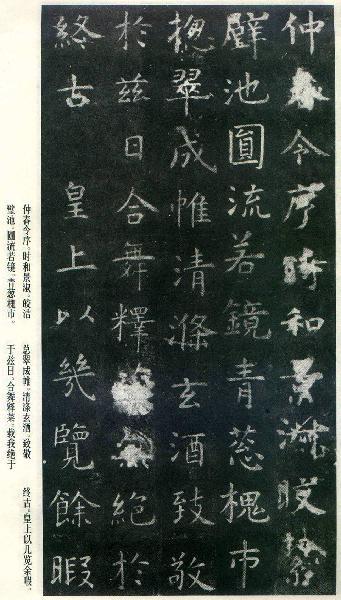 仲春令序時和景淑皎潔
璧池圓流若鏡青蔥槐市
揔翠成帷清滌玄酒致敬
於茲日合舞釋菜絕於
終古 皇上以幾覽餘暇
仲春令序。时和景淑。皎洁
璧池。圆流若镜。青葱槐市。
总翠成帷。清涤玄酒。致敬
于兹日。合舞释菜。绝于
终古。皇上以几览余暇。